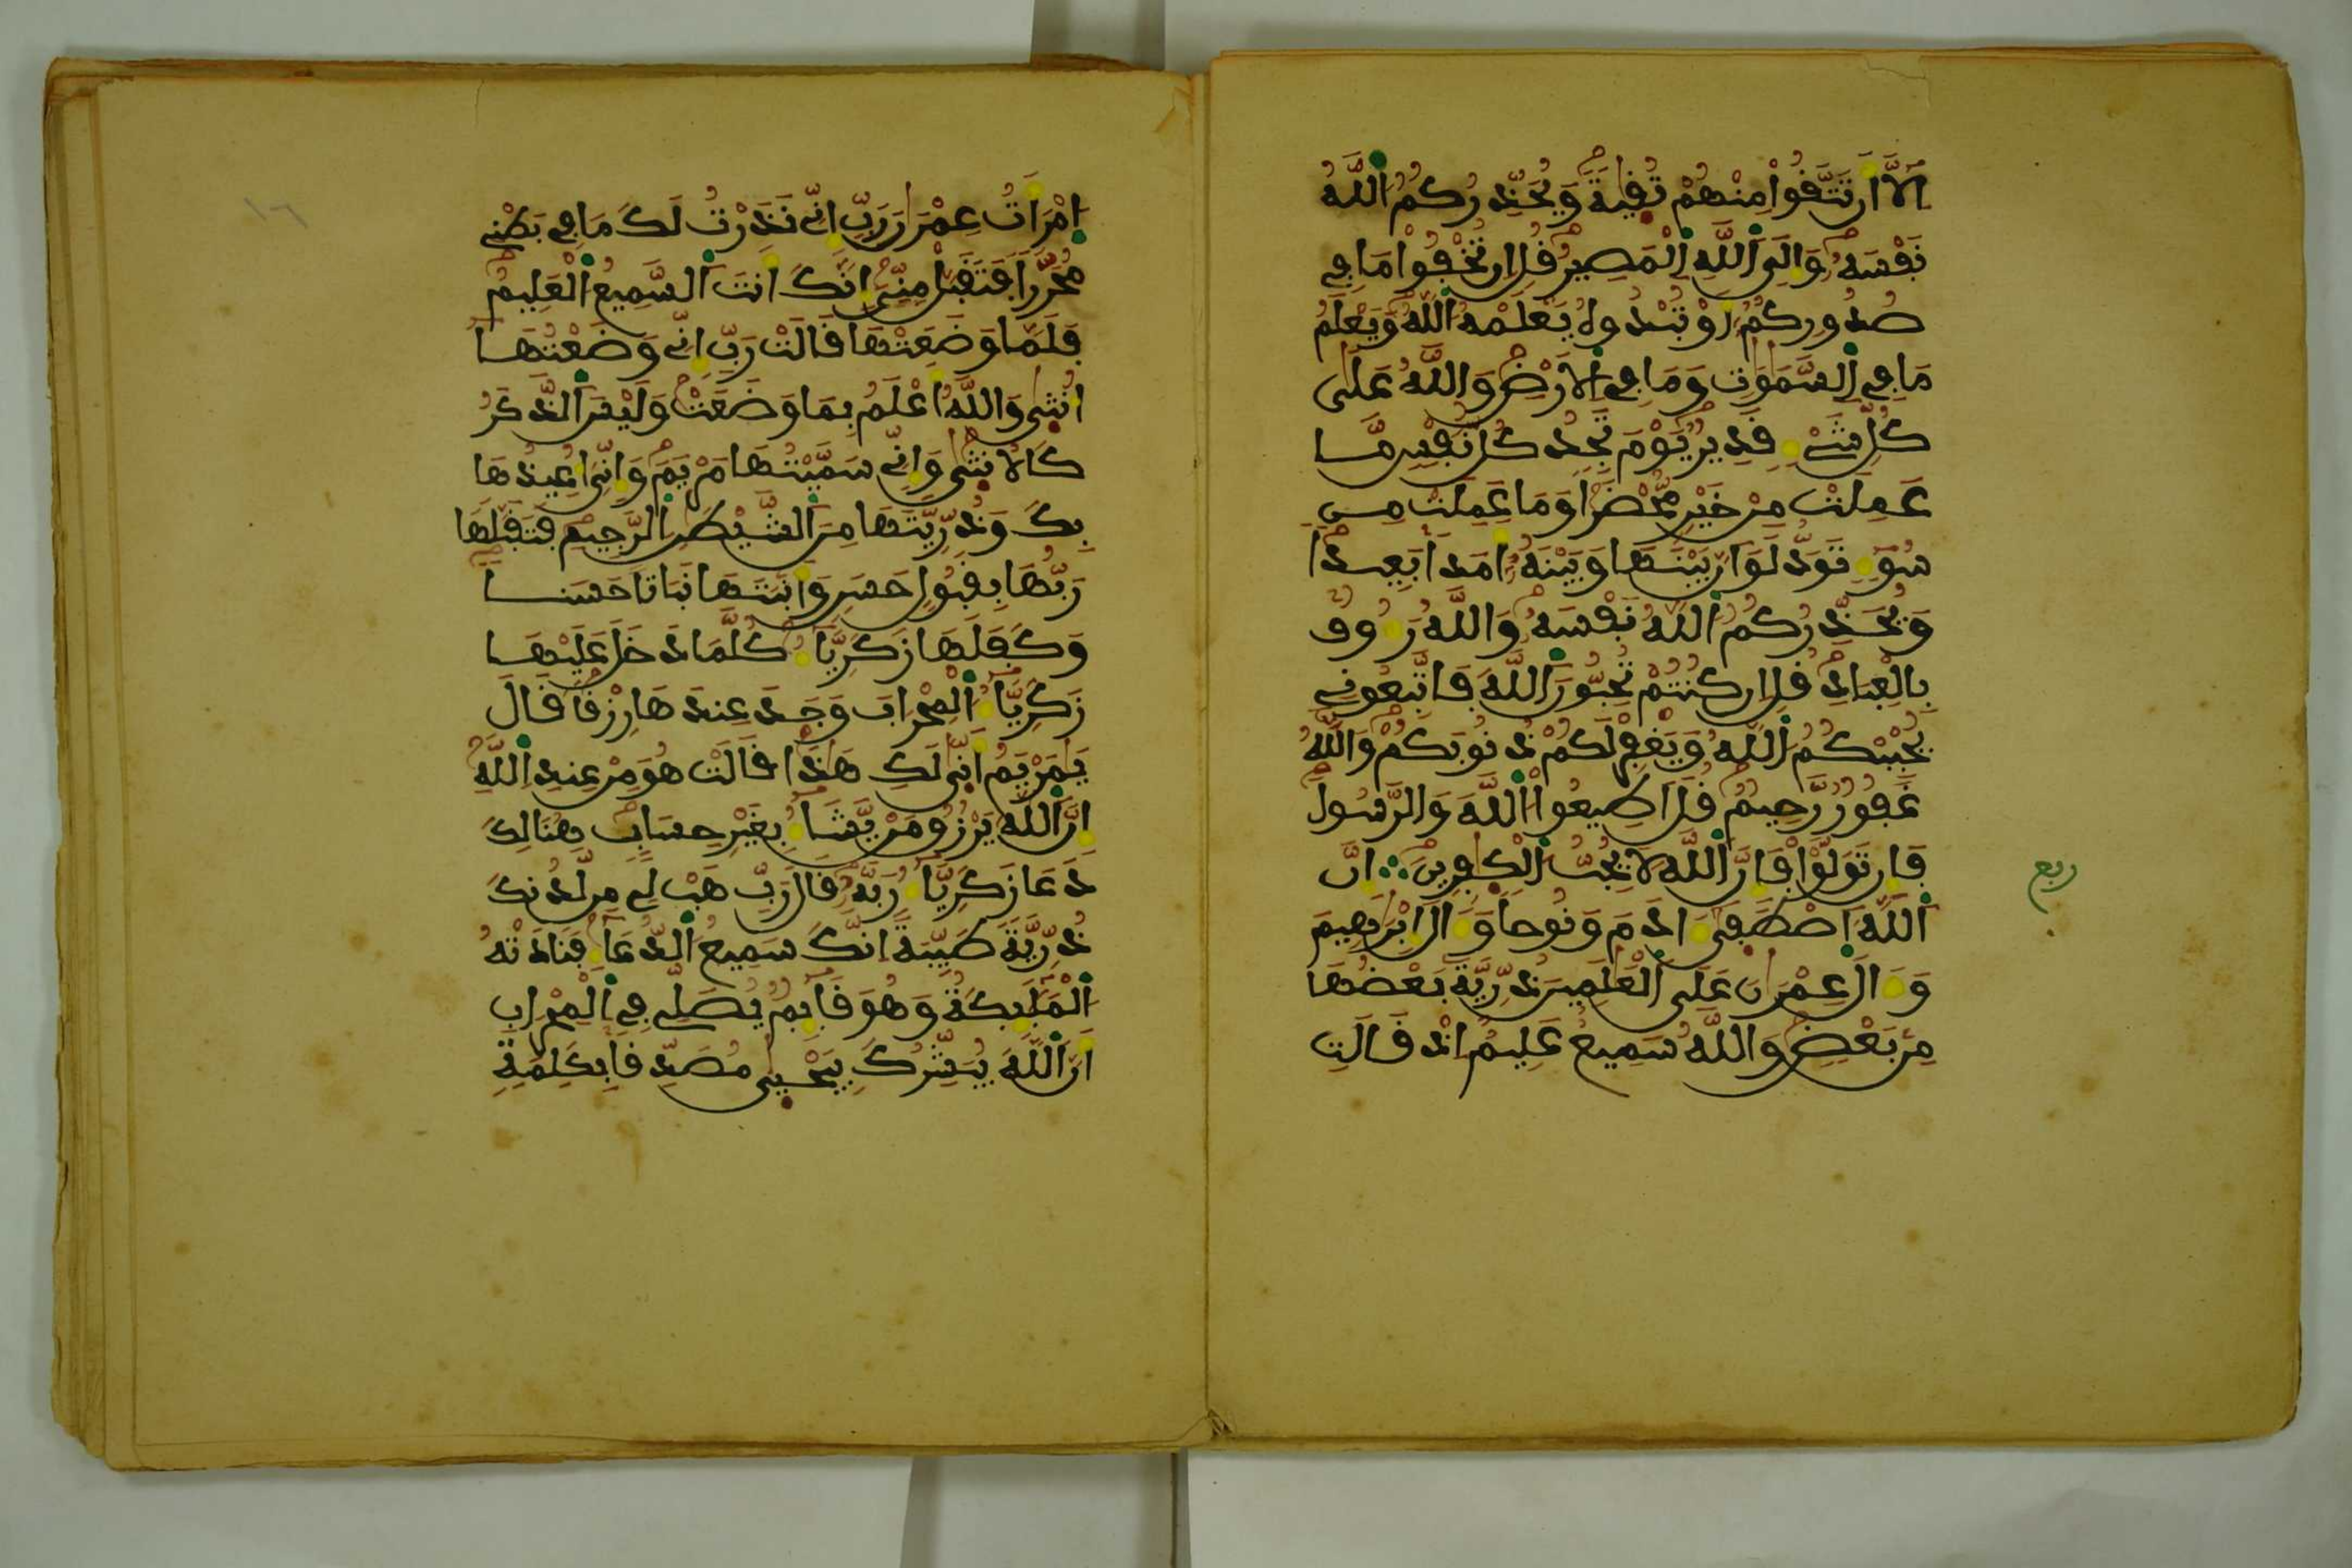 اِلَّا أَن تَتَّقُواْ مِنْهُمْ تُقِيةً وَيُحَذِّرُكُمُ اللَّهُ
نَفْسَهُ وَإِلَى اللَّهِ الْمَصِيرُ قُلِ ان تُخْفُواْ مَا فِے
صُدُورِكُمُ أَوْ تُبْدُوهُ يَعْلَمْهُ اللَّهُ وَيَعْلَمُ
مَا فِے السَّمَٰوَٰتِ وَمَا فِے الْارْضِ وَاللَّهُ عَلَىٰ
كُلِّ شَےْءٍ قَدِيرٌ يَوْمَ تَجِدُ كُلُّ نَفْسٍ مَّا
عَمِلَتْ مِنْ خَيْرٍ مُّحْضَراً وَمَا عَمِلَتْ مِن
سُوٓءٍ تَوَدُّ لَوَ أَنَّ بَيْنَهَا وَبَيْنَهُ أَمَداً بَعِيداً
وَيُحَذِّرُكُمُ اللَّهُ نَفْسَهُ وَاللَّهُ رَءُوفٌ
بِالْعِبَادِ قُلِ ان كُنتُمْ تُحِبُّونَ اللَّهَ فَاتَّبِعُونِے
يُحْبِبْكُمُ اللَّهُ وَيَغْفِرْ لَكُمْ ذُنُوبَكُمْ وَاللَّهُ
غَفُورٌ رَّحِيمٌ قُلَ اَطِيعُواْ اللَّهَ وَالرَّسُولَ
فَإِن تَوَلَّوْاْ فَإِنَّ اللَّهَ لَا يُحِبُّ الْكٰفِرِينَ إِنَّ
اللَّهَ اَصْطَفَىٰ ءَادَمَ وَنُوحاً وَءَالَ إِبْرَٰهِيمَ
وَءَالَ عِمْرَٰنَ عَلَى الْعَٰلَمِينَ ذُرِّيَّةَ بَعْضُهَا
مِنۢ بَعْضٍ وَاللَّهُ سَمِيعٌ عَلِيمٌ اِذْ قَالَتِ
ربع
اِمْرَأَتُ عِمْرَٰنَ رَبِّ إِنِّے نَذَرْتُ لَكَ مَا فِے بَطْنِے
مُحَرَّراً فَتَقَبَّلْ مِنِّے إِنَّكَ أَنتَ السَّمِيعُ الْعَلِيمُ
فَلَمَّا وَضَعَتْهَا قَالَتْ رَبِّ إِنِّے وَضَعْتُهَا
أُنثىٰ وَاللَّهُ أَعْلَمُ بِمَا وَضَعَتْ وَلَيْسَ الذَّكَرُ
كَالْانثىٰ وَإِنِّے سَمَّيْتُهَا مَرْيَمَ وَإِنِّيَ أُعِيذُهَا
بِكَ وَذُرِّيَّتَهَا مِنَ الشَّيْطَٰنِ الرَّجِيمِ فَتَقَبَّلَهَا
رَبُّهَا بِقَبُولٍ حَسَنٍ وَأَنۢبَتَهَا نَبَاتاً حَسَناً
وَكَفَلَهَا زَكَرِيَّآءُ كُلَّمَا دَخَلَ عَلَيْهَا
زَكَرِيَّآءُ الْمِحْرَابَ وَجَدَ عِندَهَا رِزْقاً قَالَ
يَٰمَرْيَمُ أَنّٰى لَكِ هَٰذَا قَالَتْ هُوَ مِنْ عِندِ اللَّهِ
إِنَّ اللَّهَ يَرْزُقُ مَنْ يَّشَآءُ بِغَيْرِ حِسَابٍ هُنَالِكَ
دَعَا زَكَرِيَّآءُ رَبَّهُ قَالَ رَبِّ هَبْ لِے مِن لَّدُنكَ
ذُرِّيَّةً طَيِّبَةً إِنَّكَ سَمِيعُ الدُّعَآءِ فَنَادَتْهُ
الْمَلَٰٓئِكَةُ وَهُوَ قَآئِمٌ يُصَلِّے فِے الْمِحْرَابِ
أَنَّ اللَّهَ يُبَشِّرُكَ بِيَحْيىٰ مُصَدِّقاً بِكَلِمَةٍ